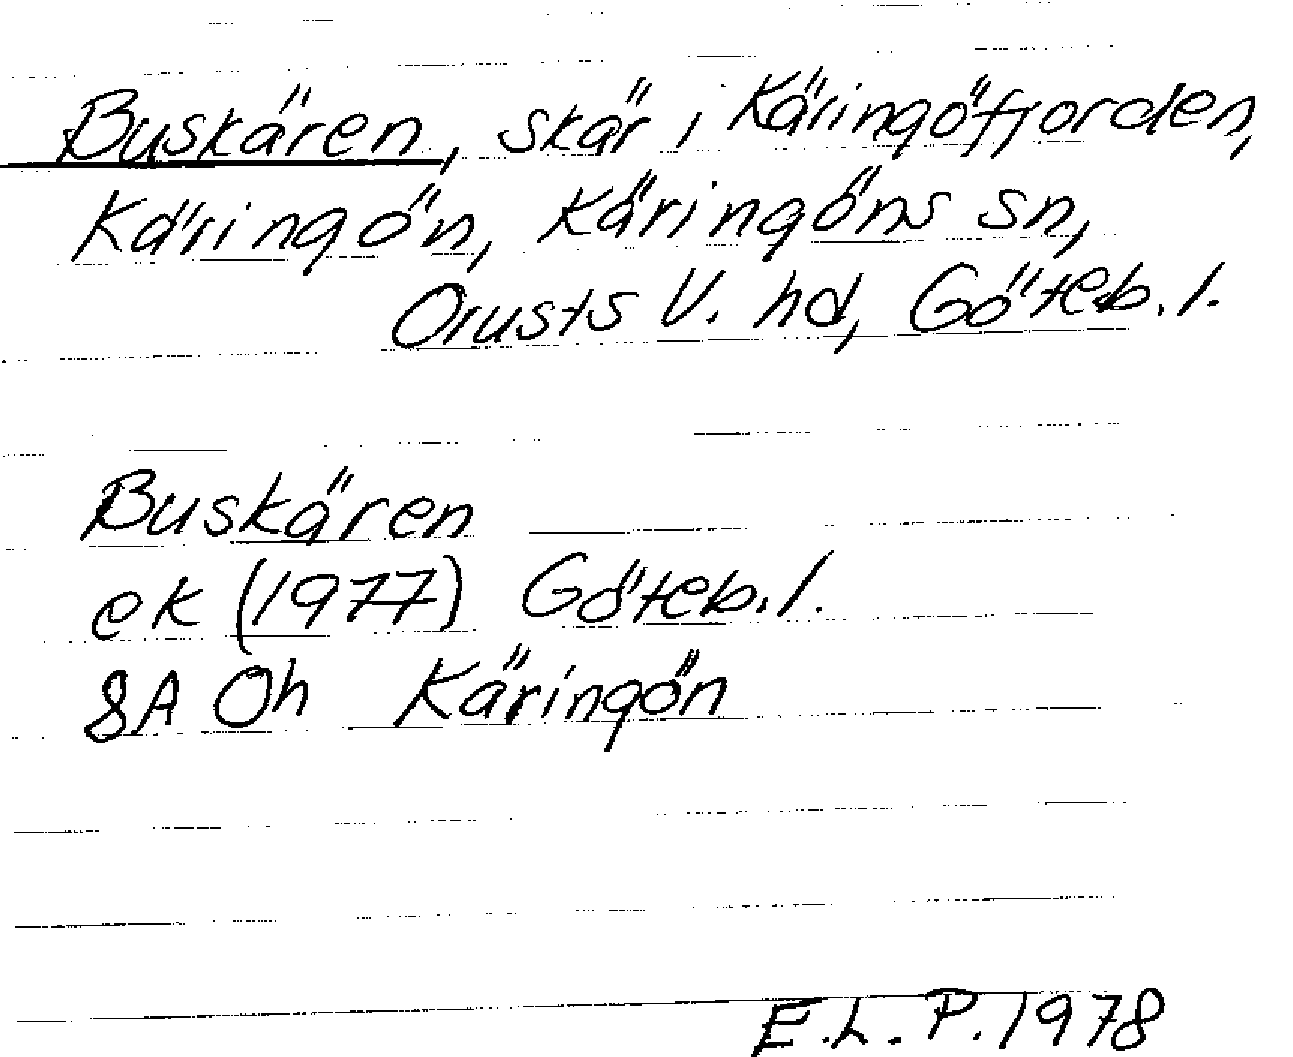 Buskären, skär i Käringöfjorden,
Käringön, Käringöns sn,
Orusts V. hd, Göteb. l.
Buskären
ek (1977) Göteb. l.
8A Oh Käringön
E.L.P. 1978